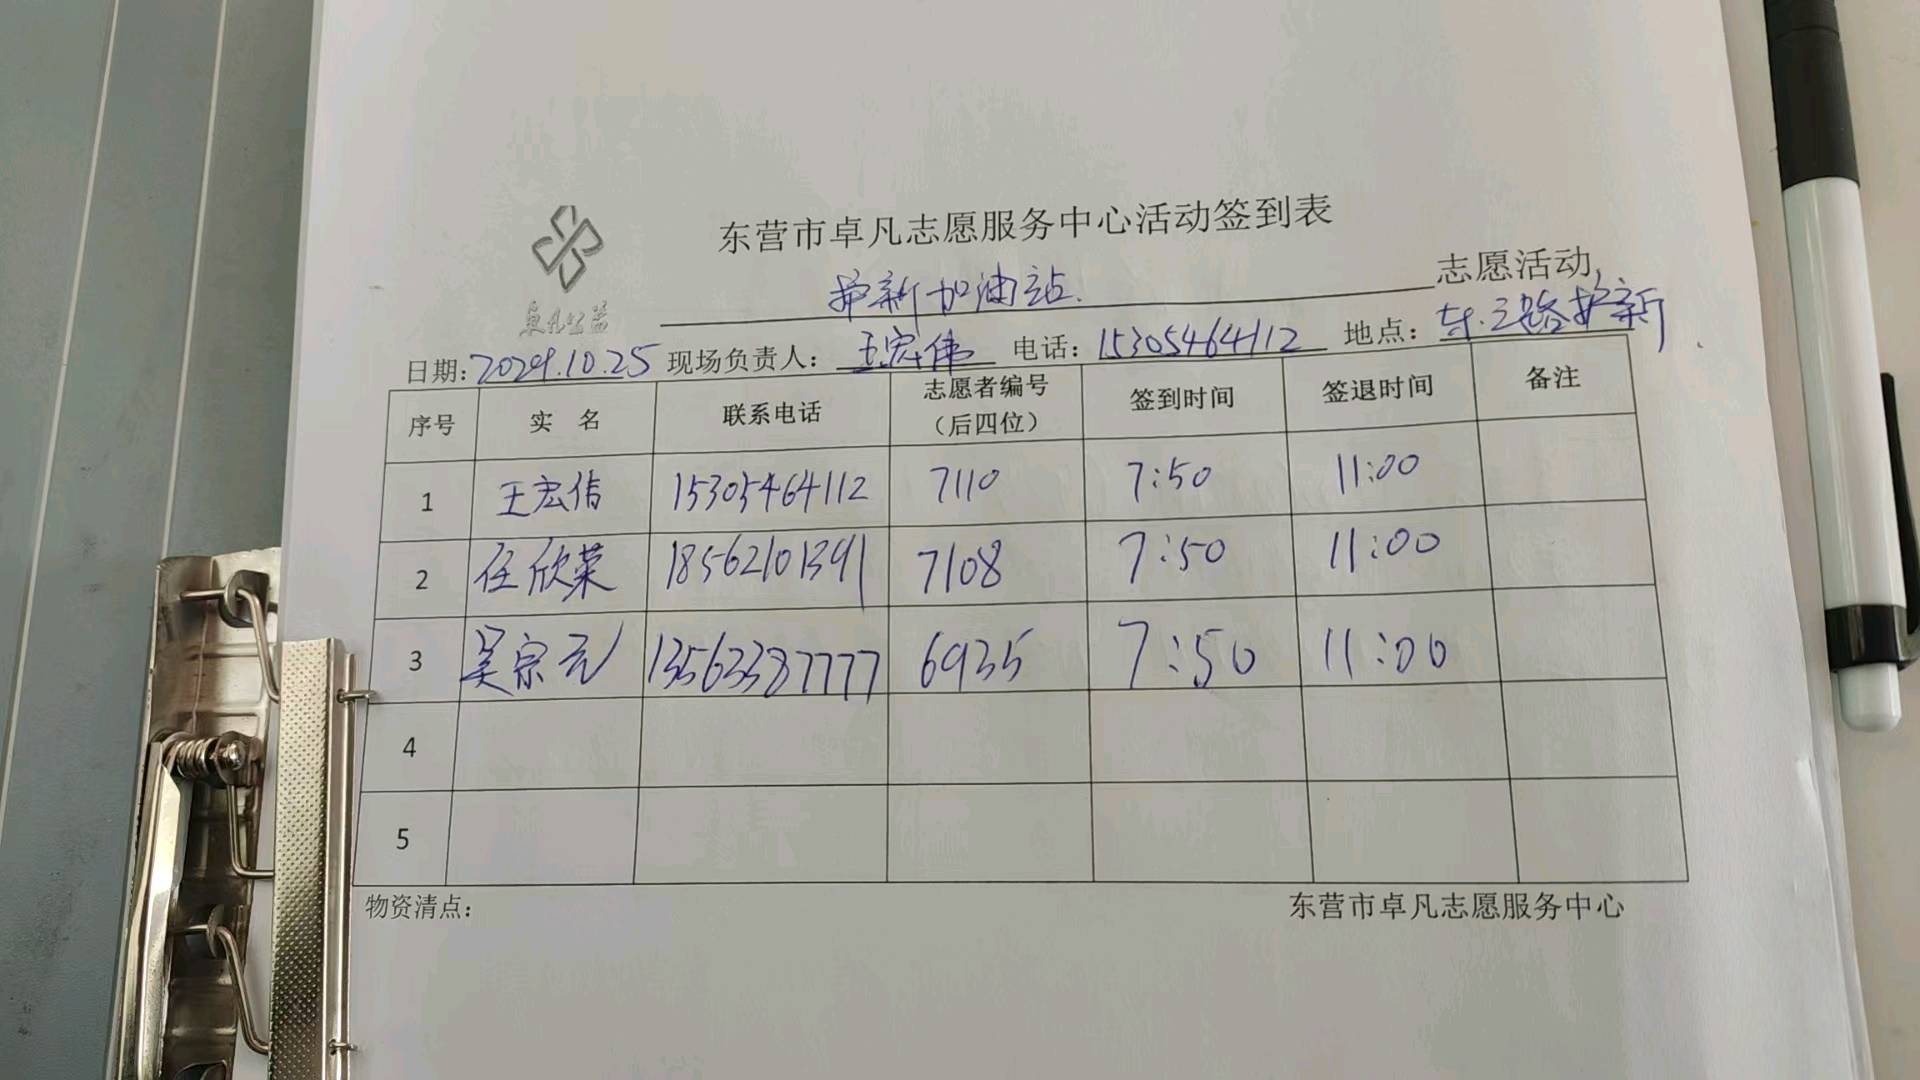 东营市卓凡志愿服务中心活动签到表
护新加油站. 志愿活动,
卓凡公益
日期: 2024.10.25 现场负责人: 王宏伟 电话: 15305464112 地点: 东三路护新
序号 实 名 联系电话 志愿者编号(后四位) 签到时间 签退时间 备注
1 王宏伟 15305464112 7110 7:50 11:00
2 任欣荣 18562101391 7108 7:50 11:00
3 吴宗元 13563387777 6935 7:50 11:00
4
5
物资清点: 东营市卓凡志愿服务中心